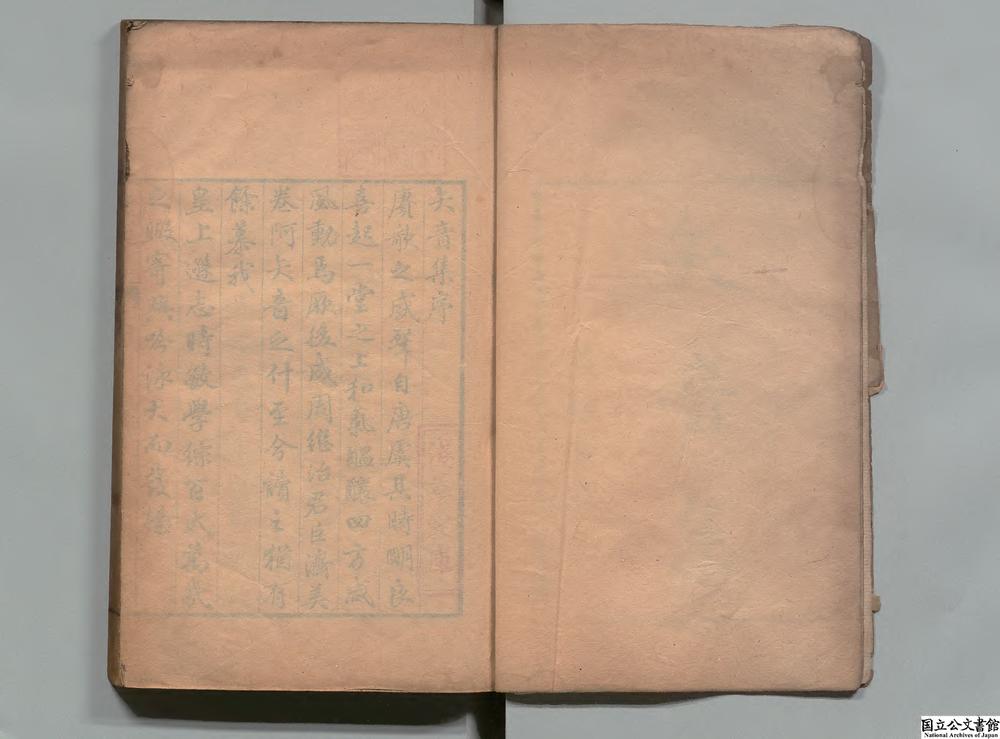 矢音集序
賡歌之盛肇自唐虞其時明良
喜起一堂之上和氣醖釀四方咸
風動焉厥後成周繼治君臣濟美
卷阿矢音之什至今讀之猶有
餘慕我
皇上遜志時敏學綜百氏萬幾
之暇寄 吟詠大而發
国立公文書館
National Archives of Japan